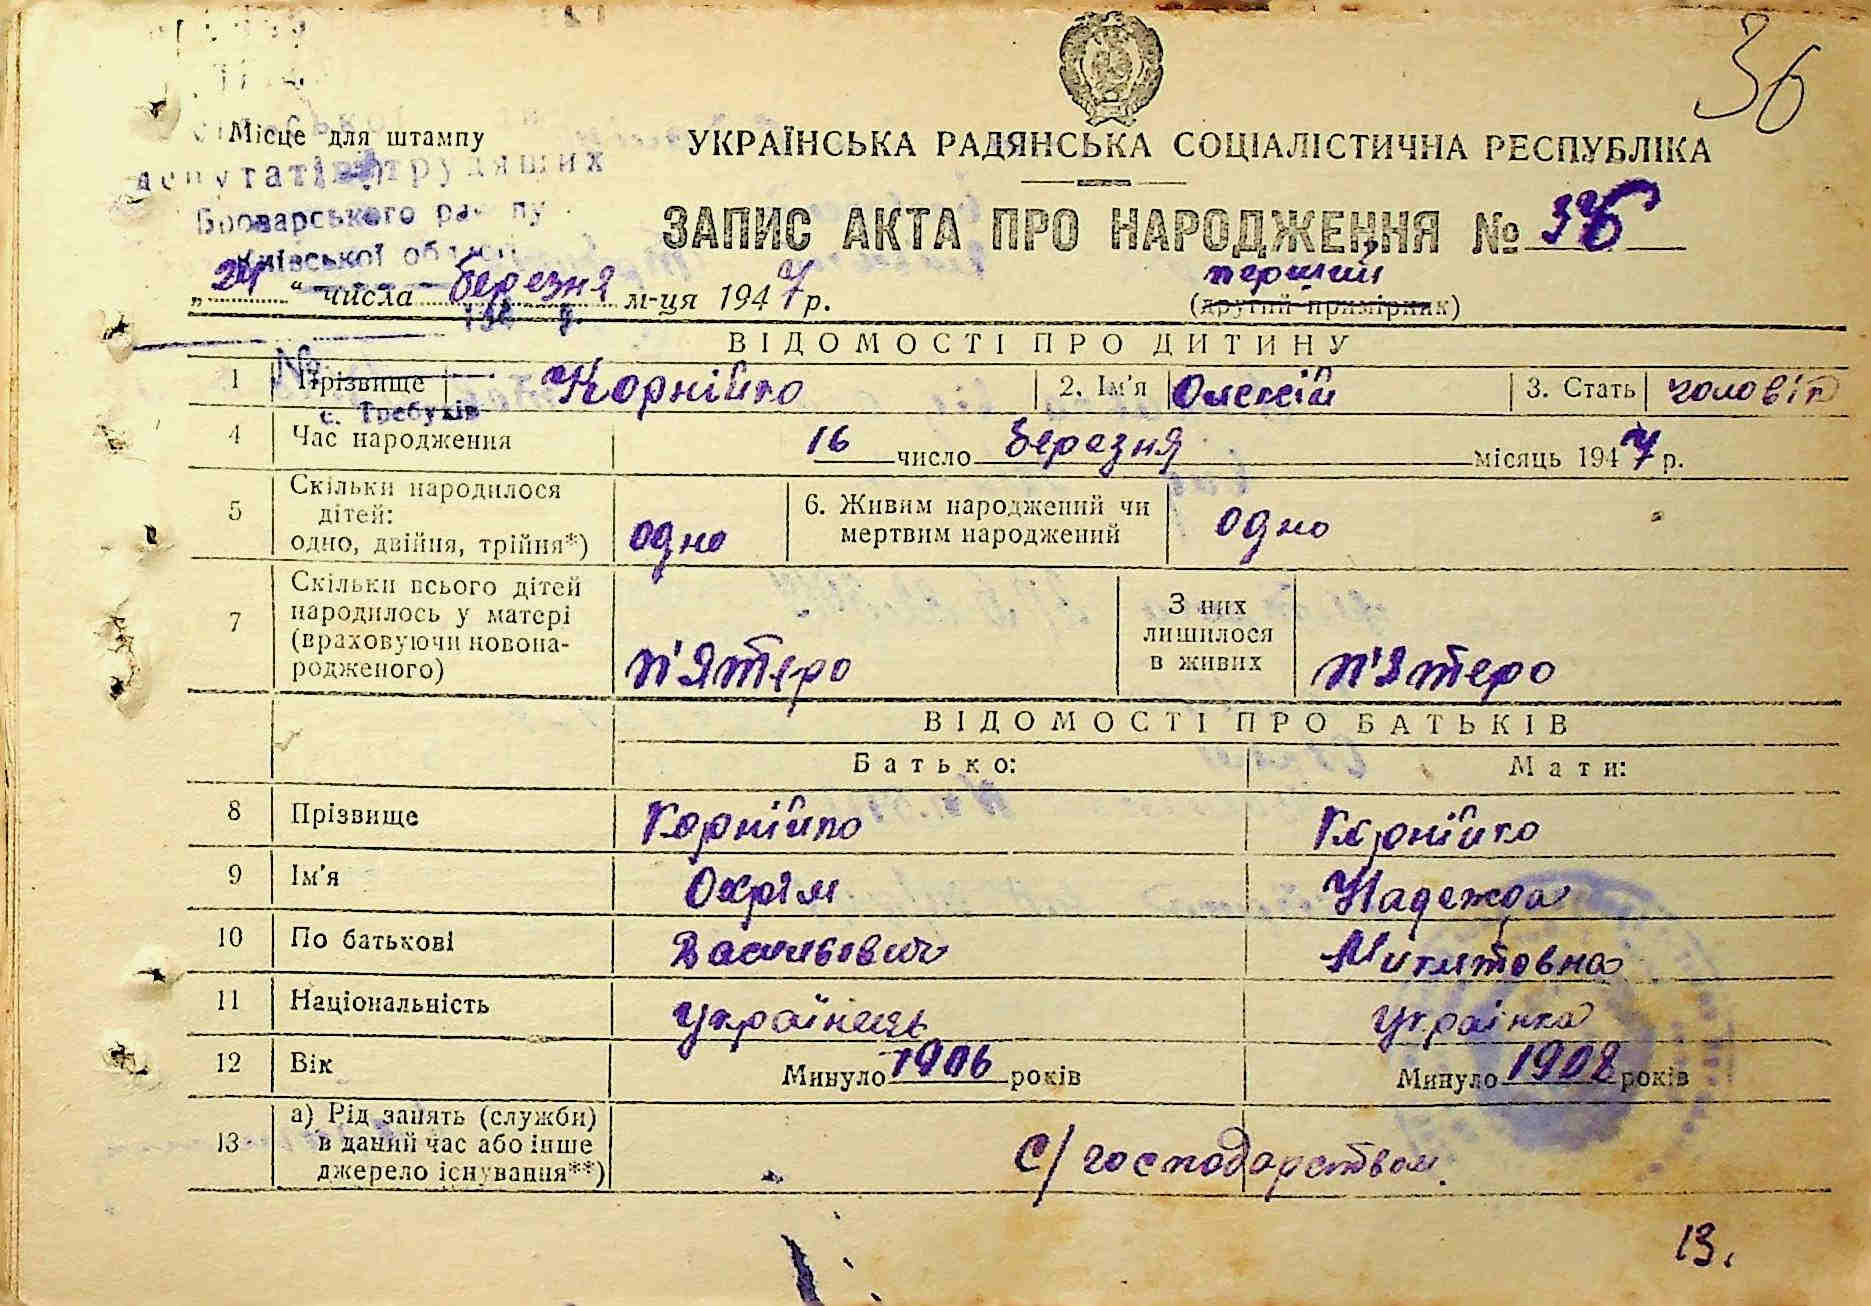 36
Місце для штампу
УКРАЇНСЬКА РАДЯНСЬКА СОЦІАЛІСТИЧНА РЕСПУБЛІКА
депутатів трудящих
Броварського району
Київської області
ЗАПИС АКТА ПРО НАРОДЖЕННЯ № 36
перший
„24“ числа березня м-ця 1947 р. (другий примірник)
194 р.
ВІДОМОСТІ ПРО ДИТИНУ
№
1 Прізвище Корнійко 2. Ім'я Олексій 3. Стать чоловіч
с. Требухів
4 Час народження 16 число березня місяць 1947 р.
5 Скільки народилося дітей: одно, двійня, трійня*) одно 6. Живим народжений чи мертвим народжений одно
7 Скільки всього дітей народилось у матері (враховуючи новона-родженого) п'ятеро З них лишилося в живих п'ятеро
ВІДОМОСТІ ПРО БАТЬКІВ
Батько: Мати:
8 Прізвище Корнійко Корнійко
9 Ім'я Охрім Надежда
10 По батькові Васильович Микитовна
11 Національність Українець Українка
12 Вік Минуло 1906 років Минуло 1908 років
13 а) Рід занять (служби) в даний час або інше джерело існування**) с/господарством
13.